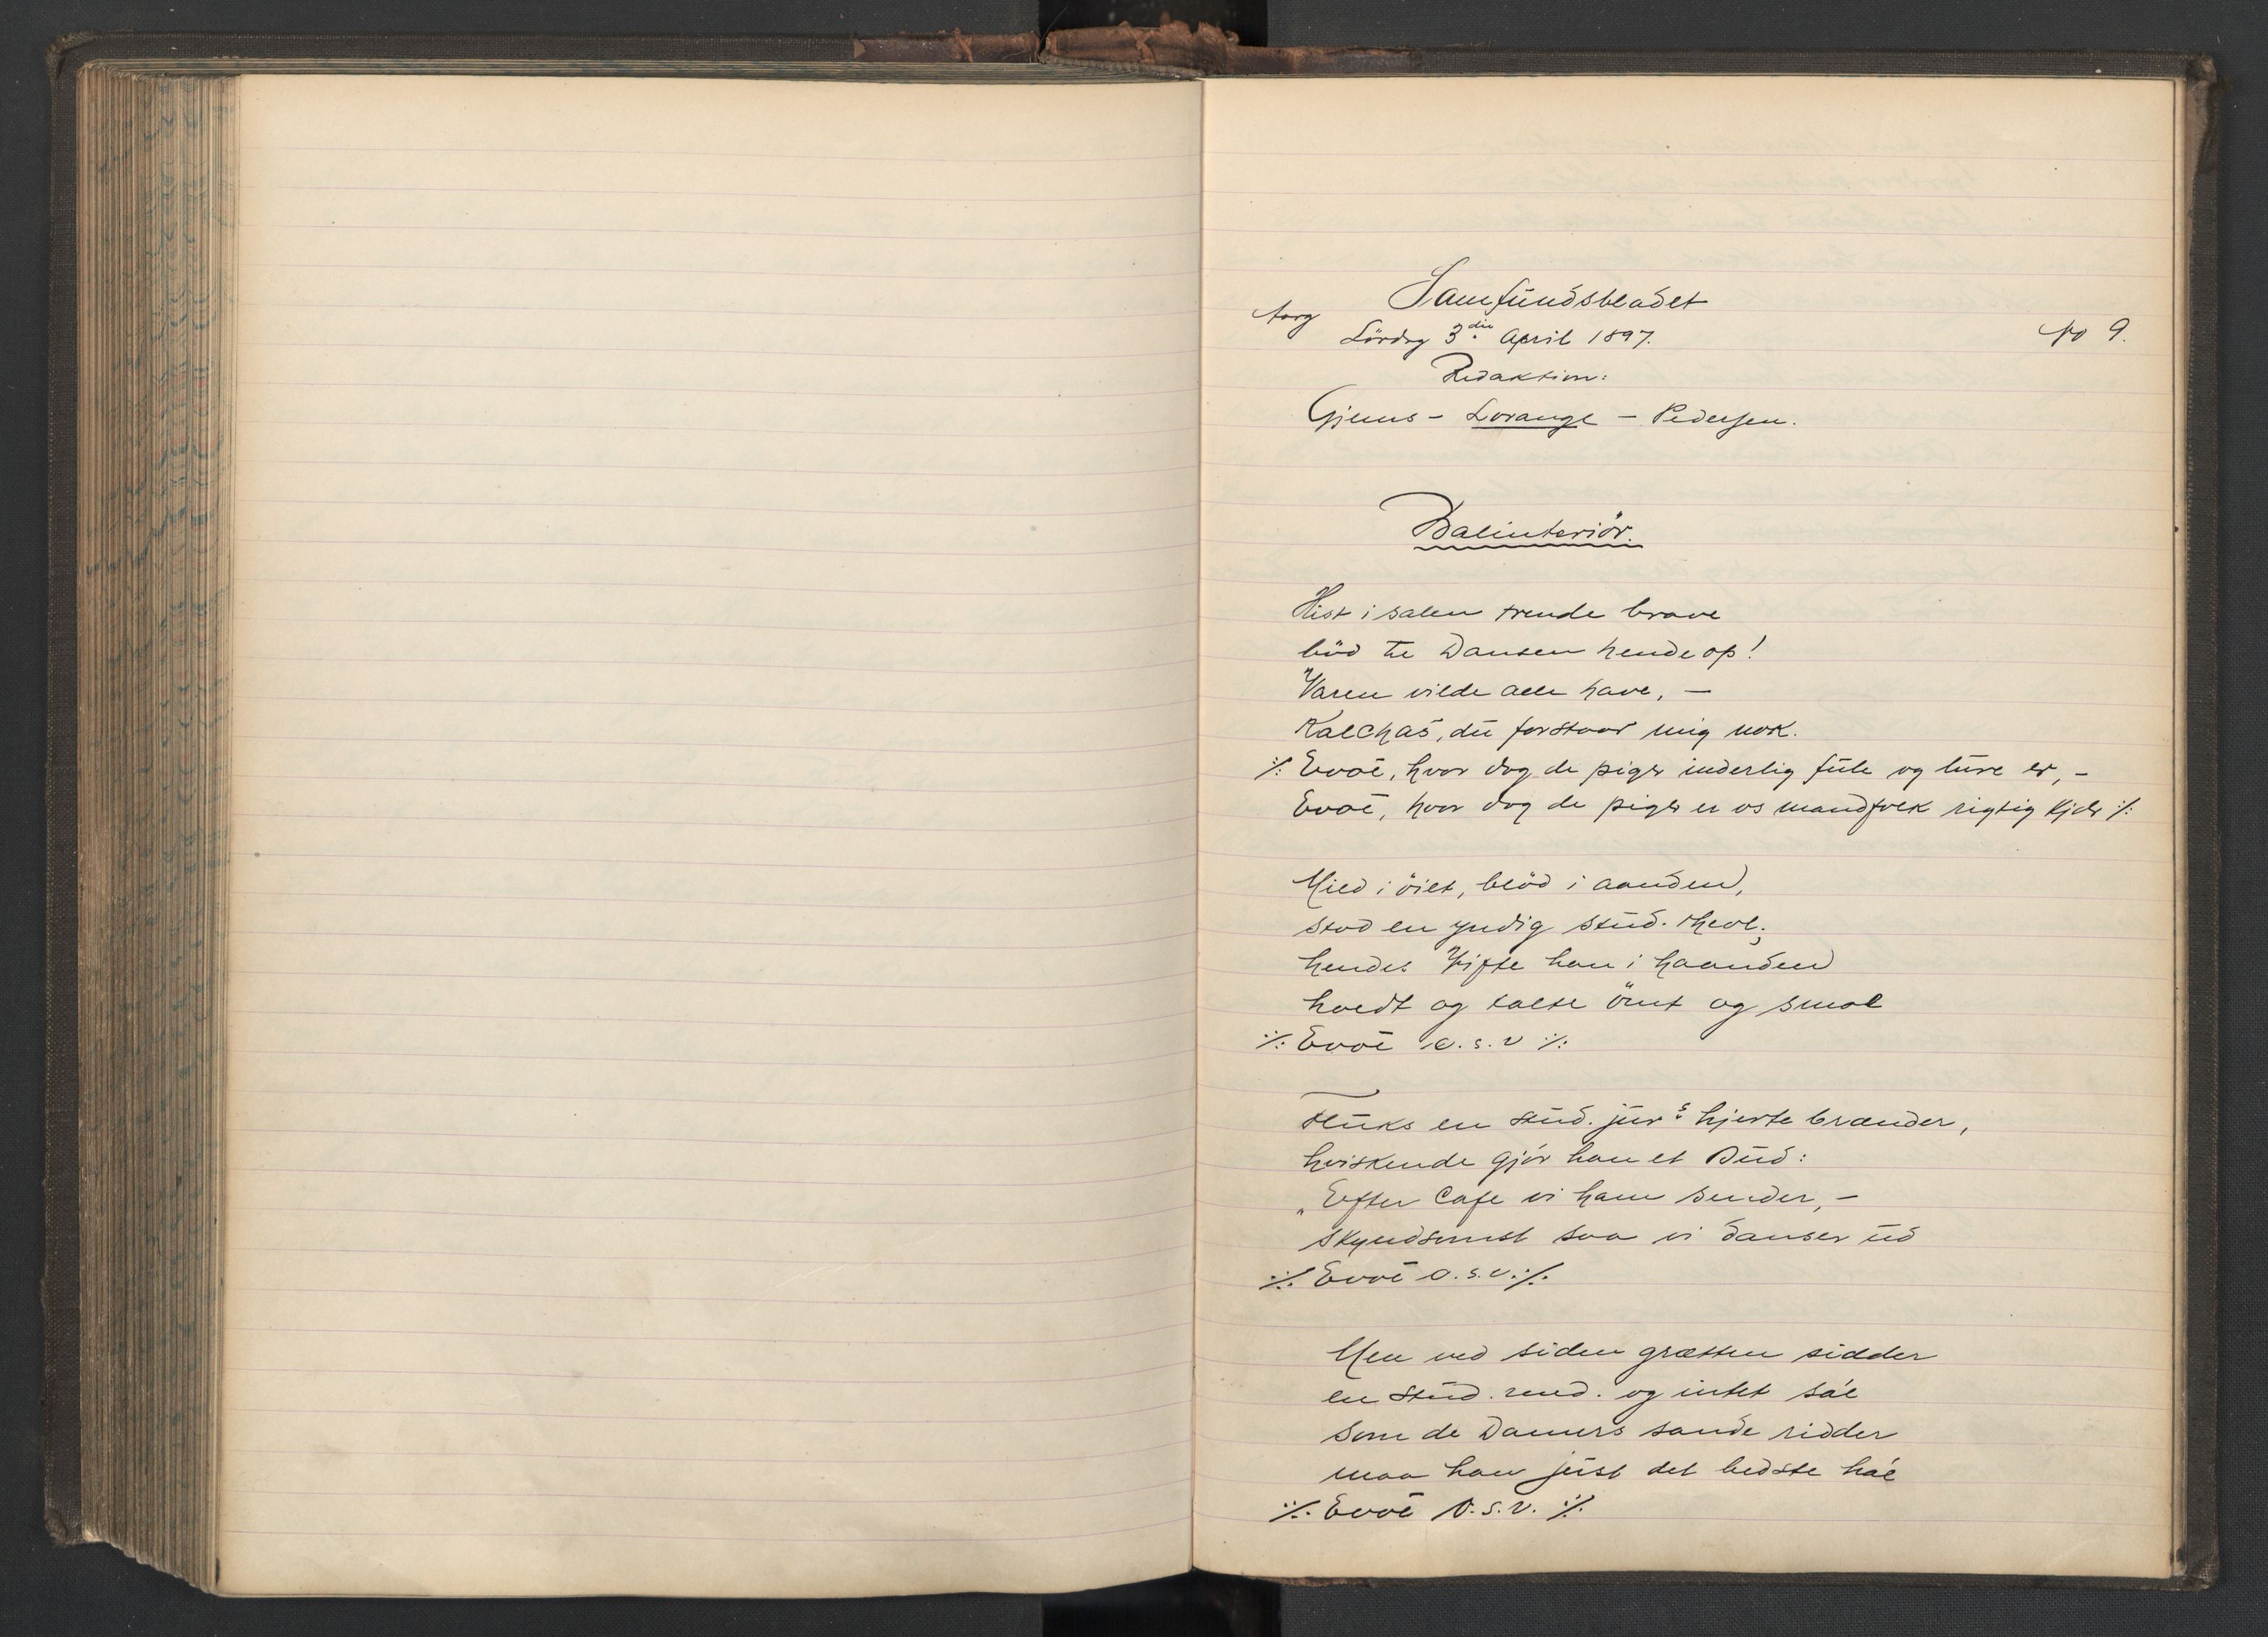 Samfundsbladet
Aarg
Lördag 3die April 1897.
No 9.
Redaktion:
Gjems - Lorange - Pedersen.
Balinteriör.
Hist i salen trende brave
böd te Dansen hende op!
Varen vilde alle have, —
Kalchas, du forstaar mig nok.
٪ Evoë, hvor dog de piger inderlig fule og lure er, -
Evoë, hvor dog de piger er os mandfolk rigtig kjær ٪
Mild i öiet, blöd i aanden,
stod en yndig stud. theol.;
hendes Vifte han i haanden
holdt og talte ömt og smol
٪ Evoë o.s.v ٪
Fluks en stud. jur's hjerte brænder,
hviskende gjör han et Bud:
„Efter Cafe vi ham sender, —
skyndsomst saa vi danser ud
٪ Evoë o.s.v. ٪
Men ved siden grætten sidder
en stud. med. og intet sa'e
som de Damers sande ridder
maa han just det bedste ha'e
٪ Evoë o.s.v. ٪